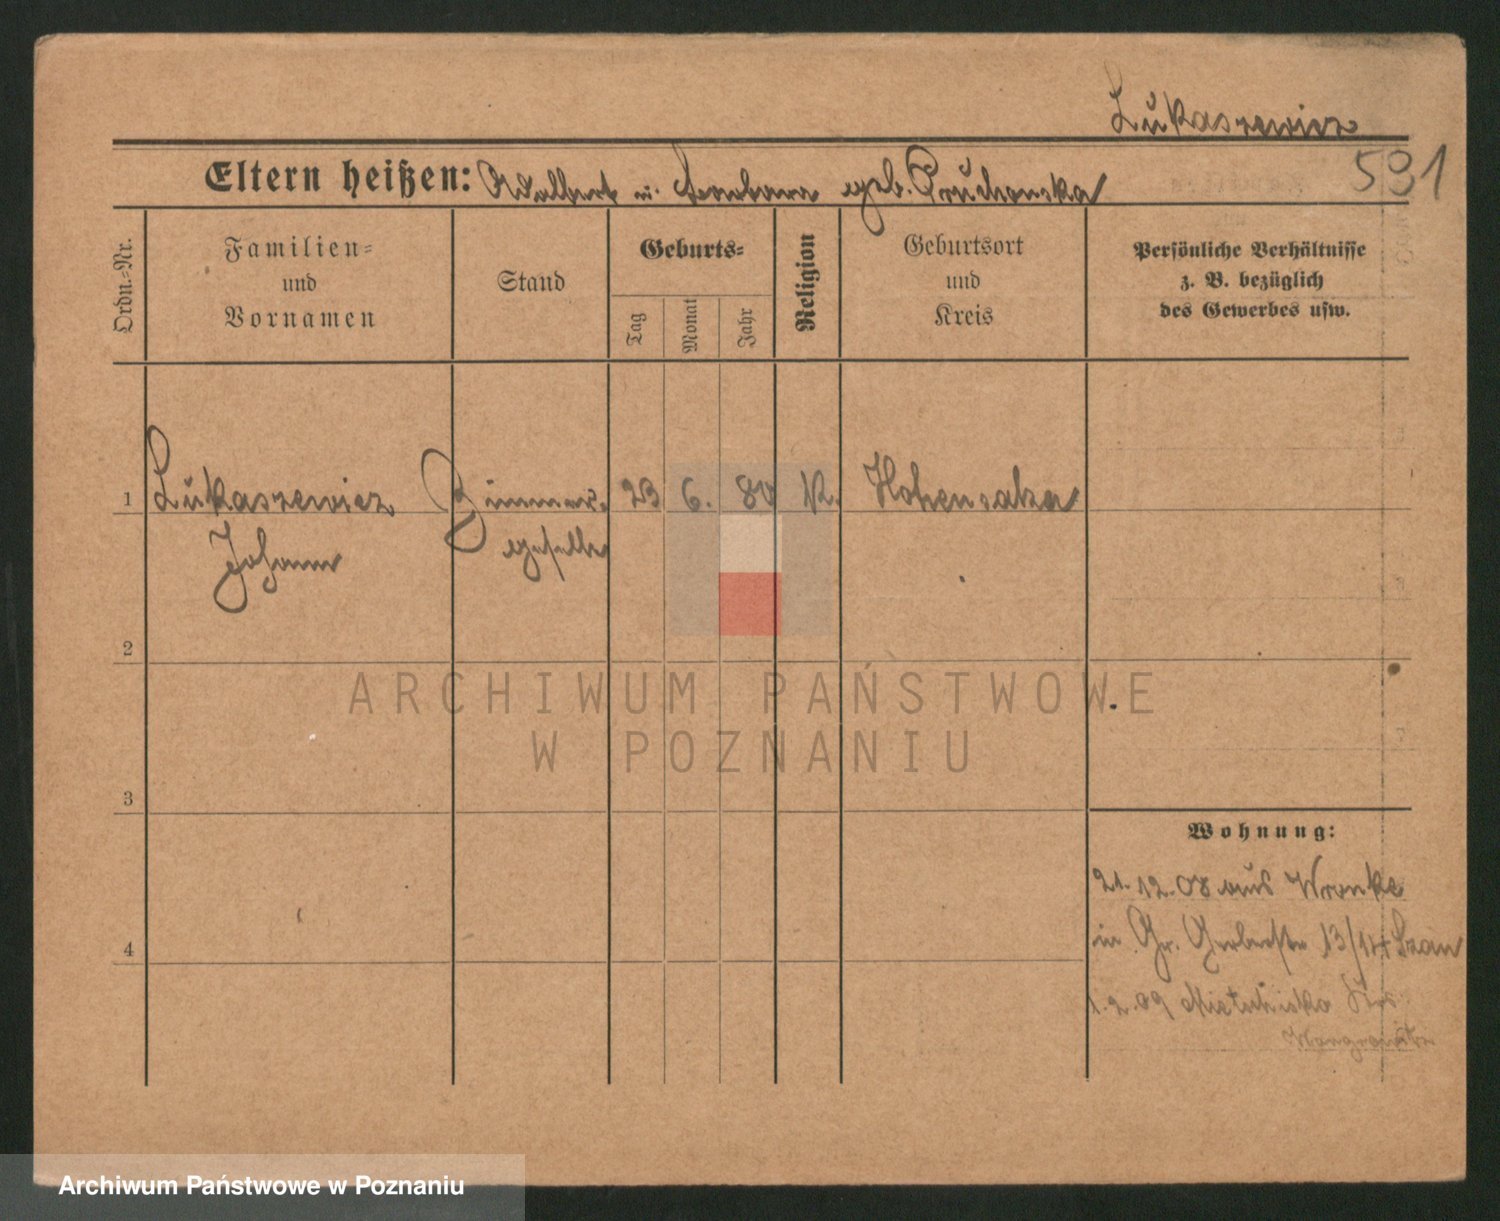 Lukaszewicz
591
Eltern heißen: Adalbert u. Barbara geb. Pruchonska
Ordn.-Nr.
Familien-
und
Vornamen
Stand
Geburts-
Tag
Monat
Jahr
Religion
Geburtsort
und
Kreis
Persönliche Verhältnisse
z. B. bezüglich
des Gewerbes usw.
1 Lukaszewicz Zimmer- 23 6. 80 K. Hohensalza
Johann geselle
2
3
4
Wohnung:
21. 12. 08 aus Wronke
in Gr. Gerberstr 13/14
1. 2. 09 Mietschisko Krs.
Wongrowitz
ARCHIWUM PAŃSTWOWE
W POZNANIU
Archiwum Państwowe w Poznaniu